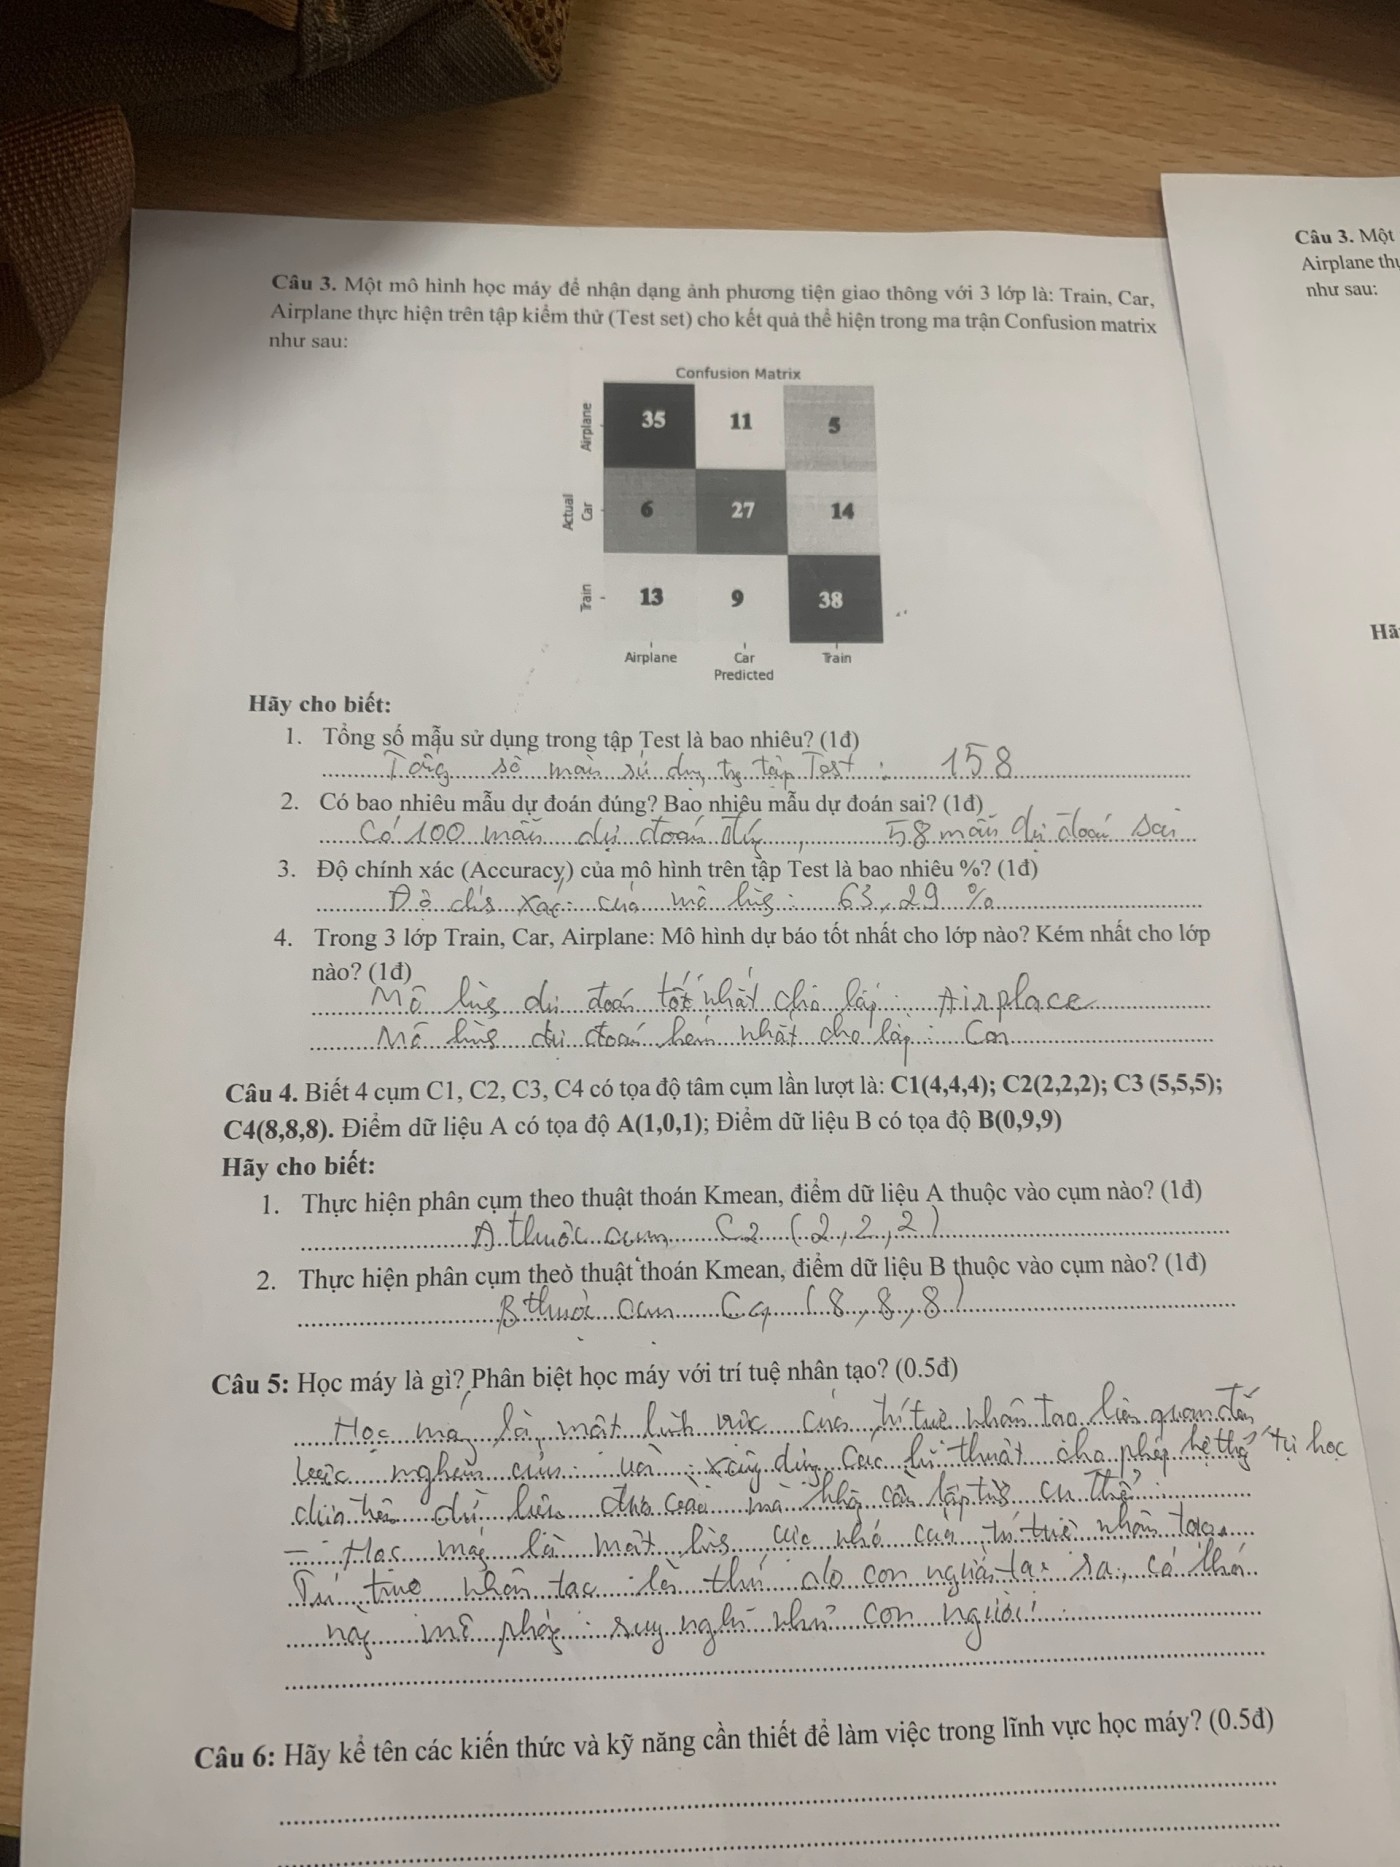 Câu 3. Một mô hình học máy để nhận dạng ảnh phương tiện giao thông với 3 lớp là: Train, Car,
Airplane thực hiện trên tập kiểm thử (Test set) cho kết quả thể hiện trong ma trận Confusion matrix
như sau:
Confusion Matrix
Airplane 35 11 5
Actual
Car 6 27 14
Train 13 9 38
Airplane Car Train
Predicted
Hãy cho biết:
1. Tổng số mẫu sử dụng trong tập Test là bao nhiêu? (1đ)
Tổng số mẫu sử dụng tg tập Test : 158
2. Có bao nhiêu mẫu dự đoán đúng? Bao nhiêu mẫu dự đoán sai? (1đ)
Có 100 mẫu dự đoán đúng, 58 mẫu dự đoán sai
3. Độ chính xác (Accuracy) của mô hình trên tập Test là bao nhiêu %? (1đ)
Độ chính xác của mô hình : 63,29 %
4. Trong 3 lớp Train, Car, Airplane: Mô hình dự báo tốt nhất cho lớp nào? Kém nhất cho lớp
nào? (1đ)
Mô hình dự đoán tốt nhất cho lớp : Airplace
Mô hình dự đoán kém nhất cho lớp : Car
Câu 4. Biết 4 cụm C1, C2, C3, C4 có tọa độ tâm cụm lần lượt là: C1(4,4,4); C2(2,2,2); C3 (5,5,5);
C4(8,8,8). Điểm dữ liệu A có tọa độ A(1,0,1); Điểm dữ liệu B có tọa độ B(0,9,9)
Hãy cho biết:
1. Thực hiện phân cụm theo thuật thoán Kmean, điểm dữ liệu A thuộc vào cụm nào? (1đ)
A thuộc cụm C2 (2,2,2)
2. Thực hiện phân cụm theo thuật thoán Kmean, điểm dữ liệu B thuộc vào cụm nào? (1đ)
B thuộc cụm C4 (8,8,8)
Câu 5: Học máy là gì? Phân biệt học máy với trí tuệ nhân tạo? (0.5đ)
Học máy là một lĩnh vực của trí tuệ nhân tạo liên quan đến
việc nghiên cứu và xây dựng các kĩ thuật cho phép hệ thống tự học
dựa trên dữ liệu đưa vào mà không cần lập trình cụ thể
- Học máy là một lĩnh vực nhỏ của trí tuệ nhân tạo.
Trí tuệ nhân tạo là thứ do con người tạo ra, có khả
năng mô phỏng suy nghĩ như con người
Câu 6: Hãy kể tên các kiến thức và kỹ năng cần thiết để làm việc trong lĩnh vực học máy? (0.5đ)
Câu 3. Một
Airplane thự
như sau:
Hã